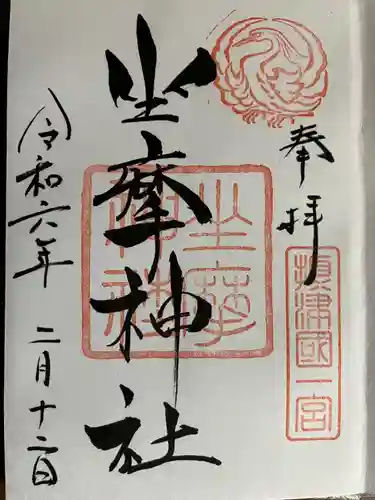 奉拝
摂津國一宮
坐摩神社
坐摩神社
令和六年二月十二日